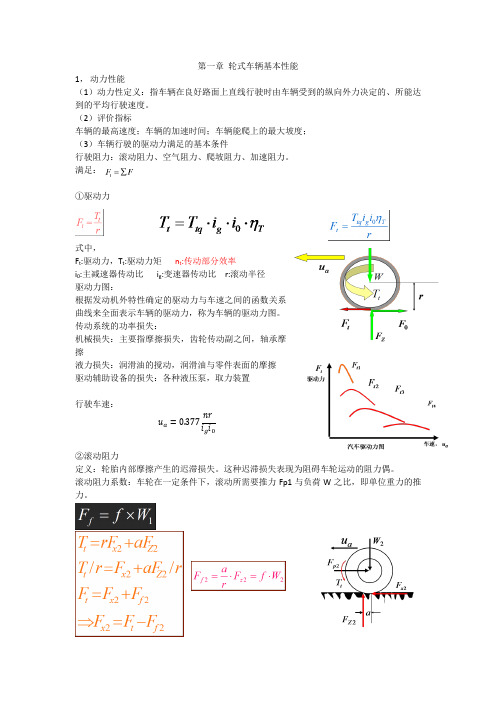 第一章 轮式车辆基本性能
1， 动力性能
（1）动力性定义：指车辆在良好路面上直线行驶时由车辆受到的纵向外力决定的、所能达
到的平均行驶速度。
（2）评价指标
车辆的最高速度；车辆的加速时间；车辆能爬上的最大坡度；
（3）车辆行驶的驱动力满足的基本条件
行驶阻力：滚动阻力、空气阻力、爬坡阻力、加速阻力。
满足： F_t = ∑F
①驱动力
F_t = T_t / r
T_t = T_tq · i_g · i_0 · η_T
F_t = T_tq i_g i_0 η_T / r
式中，
F_t:驱动力，T_t:驱动力矩 η_t:传动部分效率
i_0:主减速器传动比 i_g:变速器传动比 r:滚动半径
驱动力图：
根据发动机外特性确定的驱动力与车速之间的函数关系
曲线来全面表示车辆的驱动力，称为车辆的驱动力图。
传动系统的功率损失：
机械损失：主要指摩擦损失，齿轮传动副之间，轴承摩
擦
液力损失：润滑油的搅动，润滑油与零件表面的摩擦
驱动辅助设备的损失：各种液压泵，取力装置
u_a
W
T_t
r
F_t
F_0
F_Z
F_t
驱动力
F_t1
F_t2
F_t3
F_t4
车速，u_a
汽车驱动力图
行驶车速：
u_a = 0.377 nr / i_g i_0
②滚动阻力
定义：轮胎内部摩擦产生的迟滞损失。这种迟滞损失表现为阻碍车轮运动的阻力偶。
滚动阻力系数：车轮在一定条件下，滚动所需要推力 Fp1 与负荷 W 之比，即单位重力的推
力。
F_f = f × W_1
T_t = rF_x2 + aF_Z2
T_t/r = F_x2 + aF_Z2/r
F_t = F_x2 + F_f2
⇒ F_x2 = F_t − F_f2
F_f2 = a/r · F_z2 = f · W_2
u_a
W_2
F_p2
T_t
F_x2
a
F_Z2